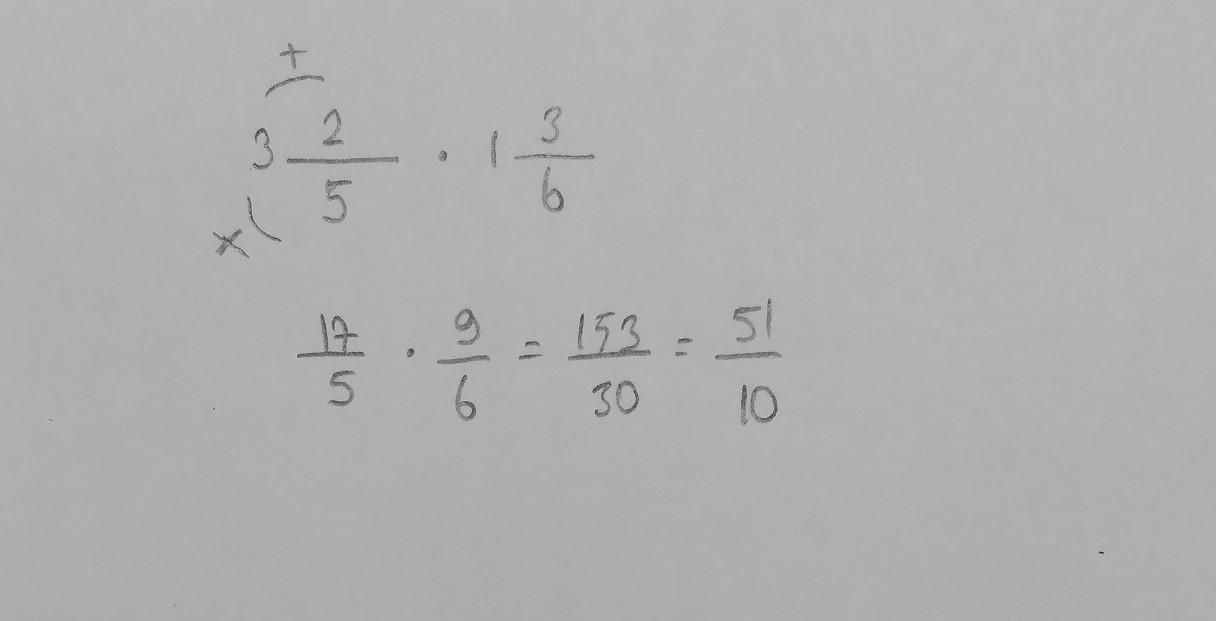 +
3 2/5 · 1 3/6
×
17/5 · 9/6 = 153/30 = 51/10